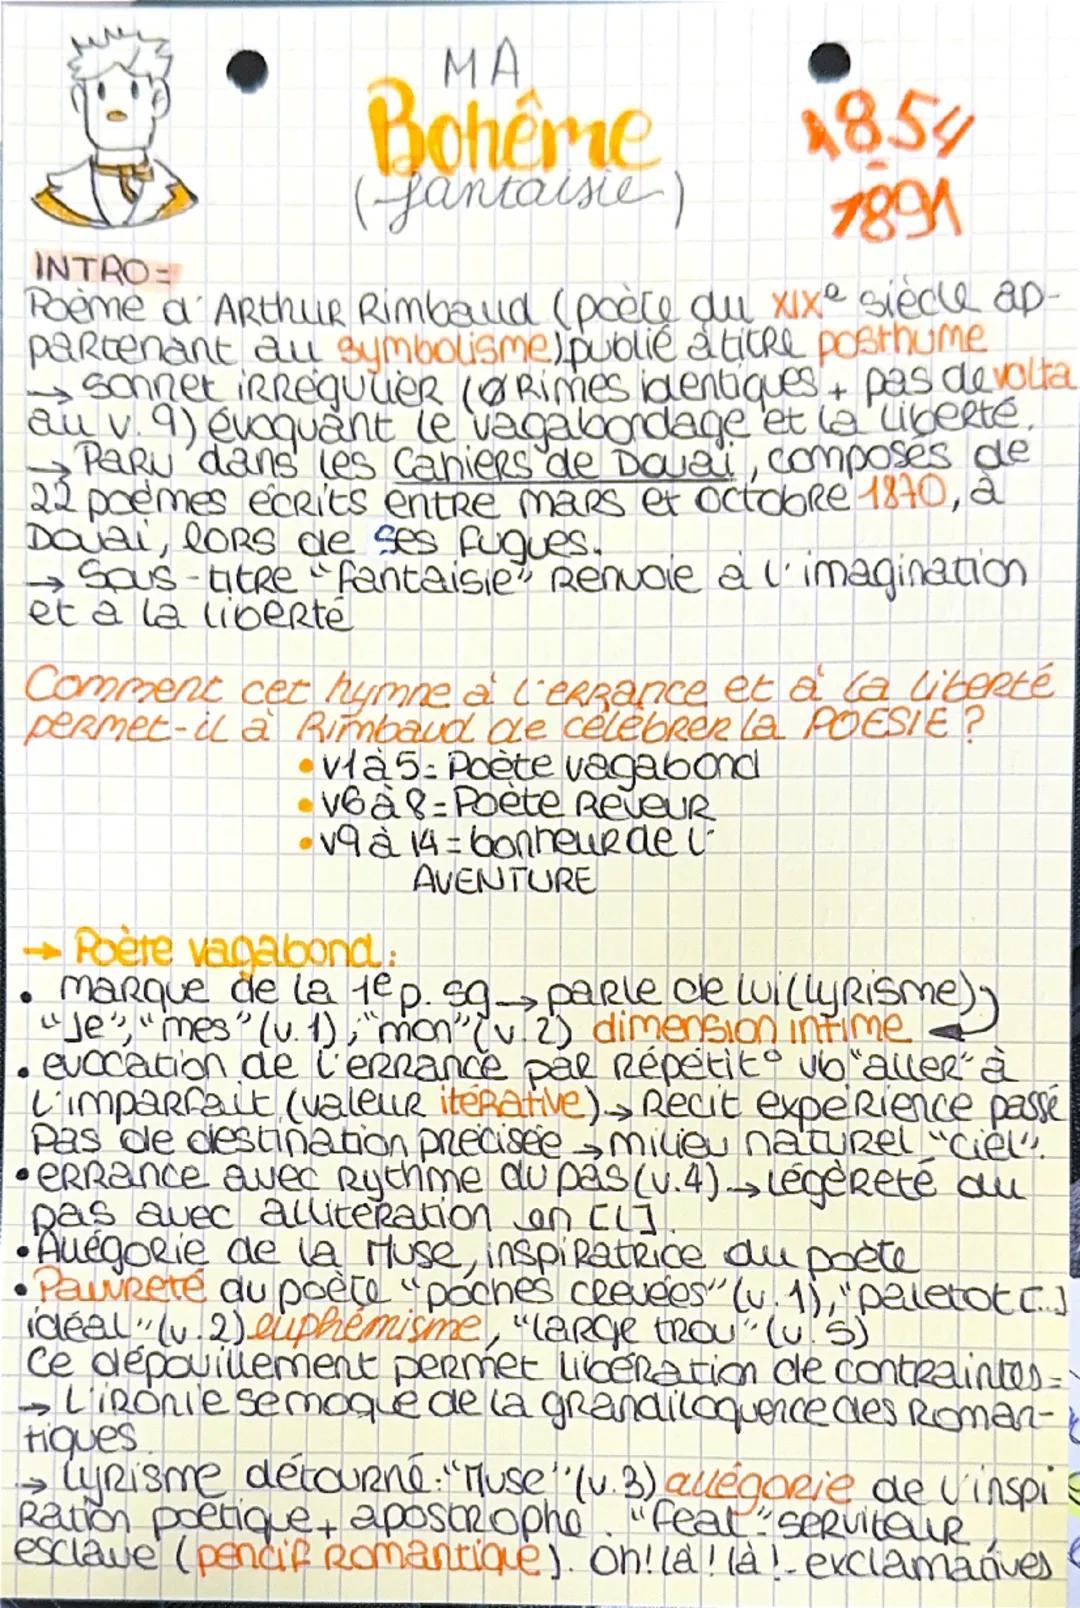 MA
Bohême
(fantaisie)
1854
-
1891
INTRO=
Poème d'Arthur Rimbaud (poète du XIXe siècle ap-
partenant au symbolisme) publié à titre posthume
→ sonnet irrégulier (Ø Rimes identiques + pas de volta
au v.9) évoquant le vagabondage et la liberté.
→ Paru dans les Cahiers de Douai, composés de
22 poèmes écrits entre mars et octobre 1870, à
Douai, lors de ses fugues.
→ Sous-titre "fantaisie" renvoie à l'imagination
et à la liberté
Comment cet hymne à l'errance et à la liberté
permet-il à Rimbaud de célébrer la POESIE ?
• v1 à 5= Poète vagabond
• v6 à 8= Poète Rêveur
• v9 à 14= bonheur de l'
AVENTURE
→ Poète vagabond :
• marque de la 1e p. sg → parle de lui (lyrisme)
"Je", "mes" (v.1), "mon" (v.2) dimension intime
• évocation de l'errance par répétit° vb "aller" à
l'imparfait (valeur itérative) → Récit expérience passé
Pas de destination précisée → milieu naturel "ciel".
• errance avec Rythme du pas (v.4) → légèreté du
pas avec allitération en [L].
• Allégorie de la Muse, inspiratrice du poète
• Pauvreté du poète "poches crevées" (v.1), "paletot [..]
idéal" (v.2) euphémisme, "large trou" (v.5)
Ce dépouillement permet libération de contraintes=
→ L'ironie se moque de la grandiloquence des Roman-
tiques.
→ Lyrisme détourné: "Muse" (v.3) allégorie de l'inspi
Ration poétique + apostrophe. "feal": serviteur,
esclave (pencif Romantique). Oh! là! là! - exclamatives